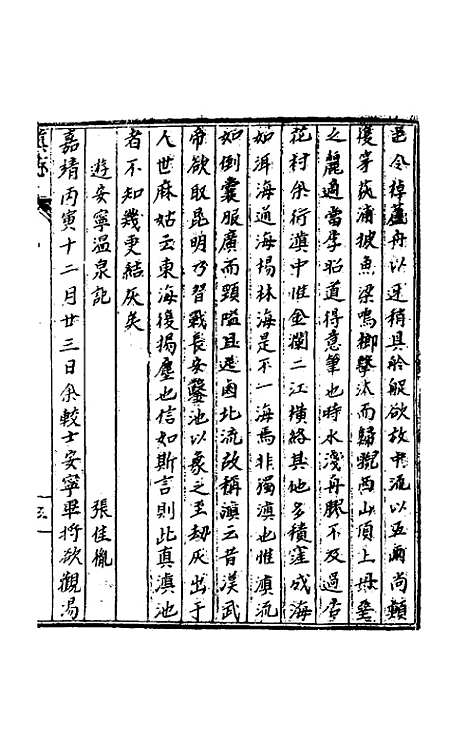 邑令棹蘆舟以迓稍具舲艇欲放中流以亞兩尚頹
復穿荻浦披魚梁鳴榔擊汰而歸睨西山頂上丹壑
之麗適當李昭道得意筆也時水淺舟膠不及過杏
花村余行滇中惟金瀾二江橫絡其他多積窪成海
如洱海通海楊林海是不一海焉非獨滇也惟滇流
如倒囊服廣而頸隘且逆國北流故稱滇云昔漢武
帝欲取昆明乃習戰長安鑿池以象之至劫灰出于
人世麻姑云東海復揚塵也信如斯言則此真滇池
者不知幾更結灰矣
遊安寧温泉記 張佳胤
嘉靖丙寅十二月廿三日余較士安寧畢將欲觀湯